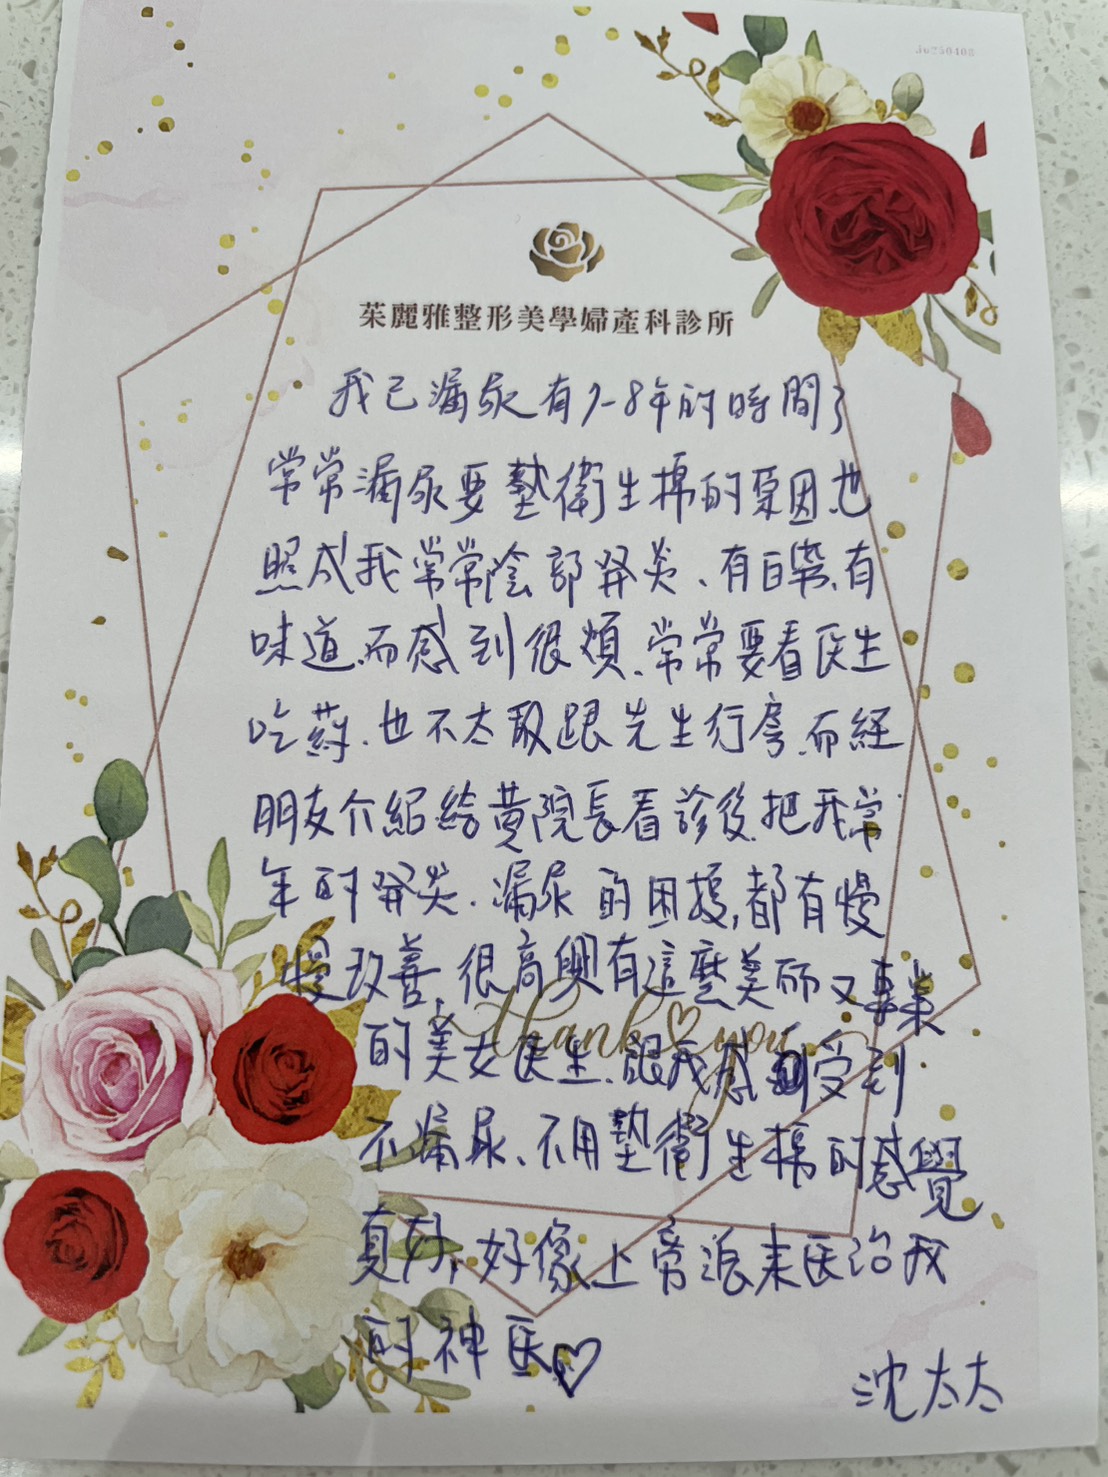 Ju250408
茱麗雅整形美學婦產科診所
我已漏尿有7-8年的時間了
常常漏尿要墊衛生棉的原因.也
照成我常常陰部發炎、有白帶.有
味道.而感到很煩.常常要看医生
吃葯.也不太敢跟先生行房.而經
朋友介紹給黃院長看診後.把我常
年的發炎.漏尿的困擾,都有慢
慢改善,很高興有這麼美而又專業
的美女医生.讓我感受到
Thank you
不漏尿、不用墊衛生棉的感覺
真好,好像上帝派來医治我
的神医♡
沈太太